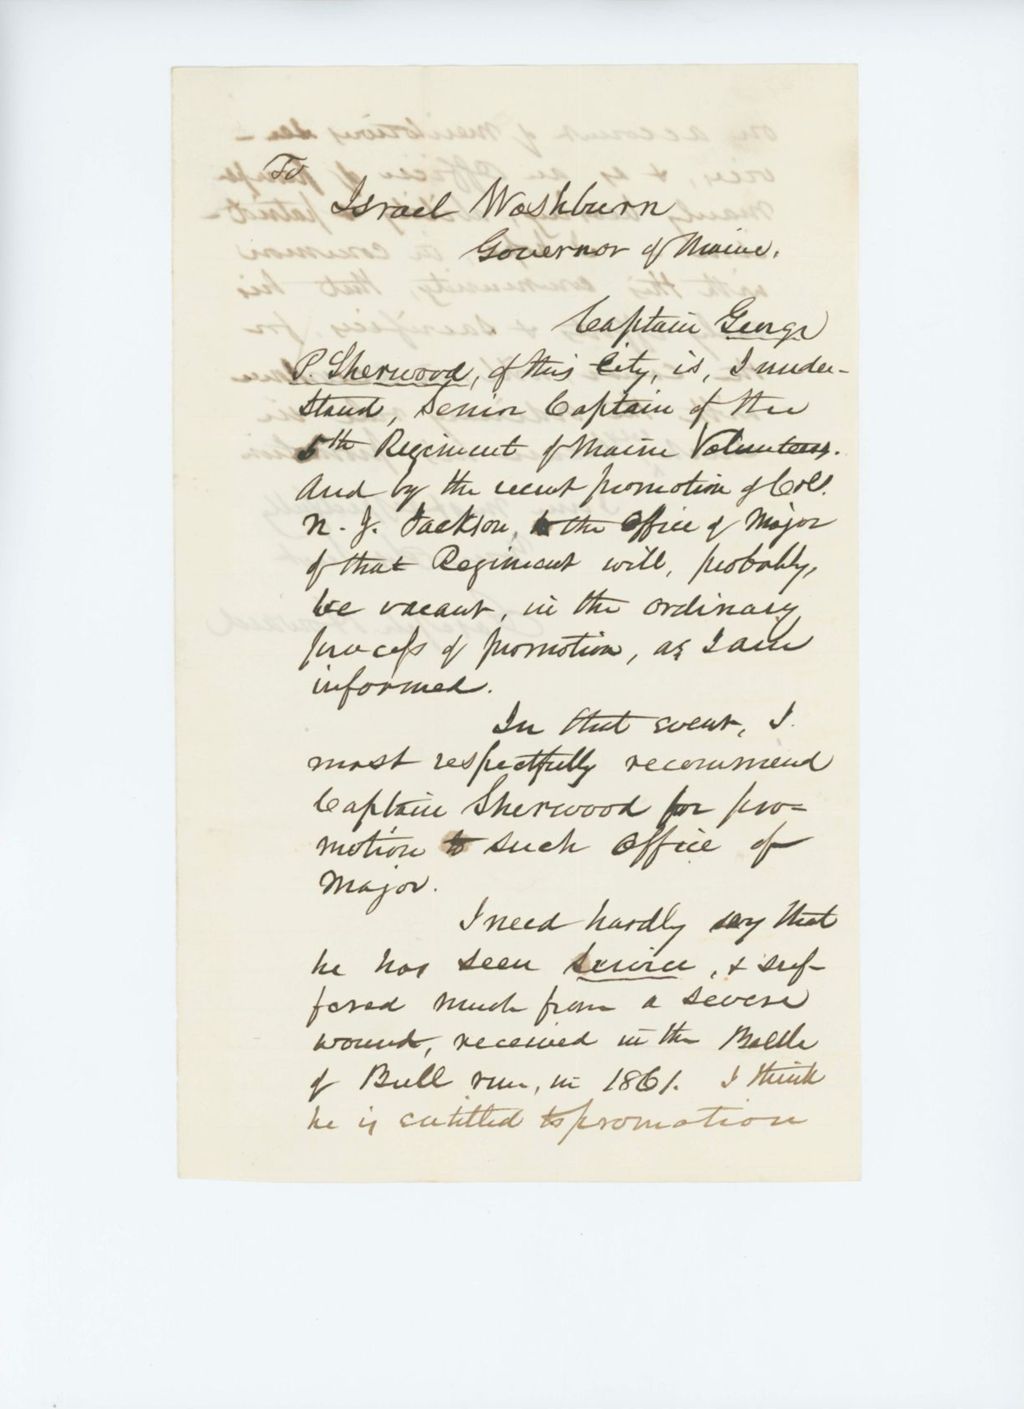 To
Israel Washburn
Governor of Maine.
Captain George
P. Sherwood, of this City, is, I under-
stand, Senior Captain of the
5th Regiment of Maine Volunteers.
And by the recent promotion of Col.
N. J. Jackson, the Office of Major
of that Regiment will, probably,
be vacant, in the ordinary
process of promotion, as I am
informed.
In that event, I
most respectfully recommend
Captain Sherwood for pro-
motion to such Office of
Major.
I need hardly say that
he has seen service, & suf-
fered much from a severe
wound, received in the Battle
of Bull run, in 1861. I think
he is entitled to promotion